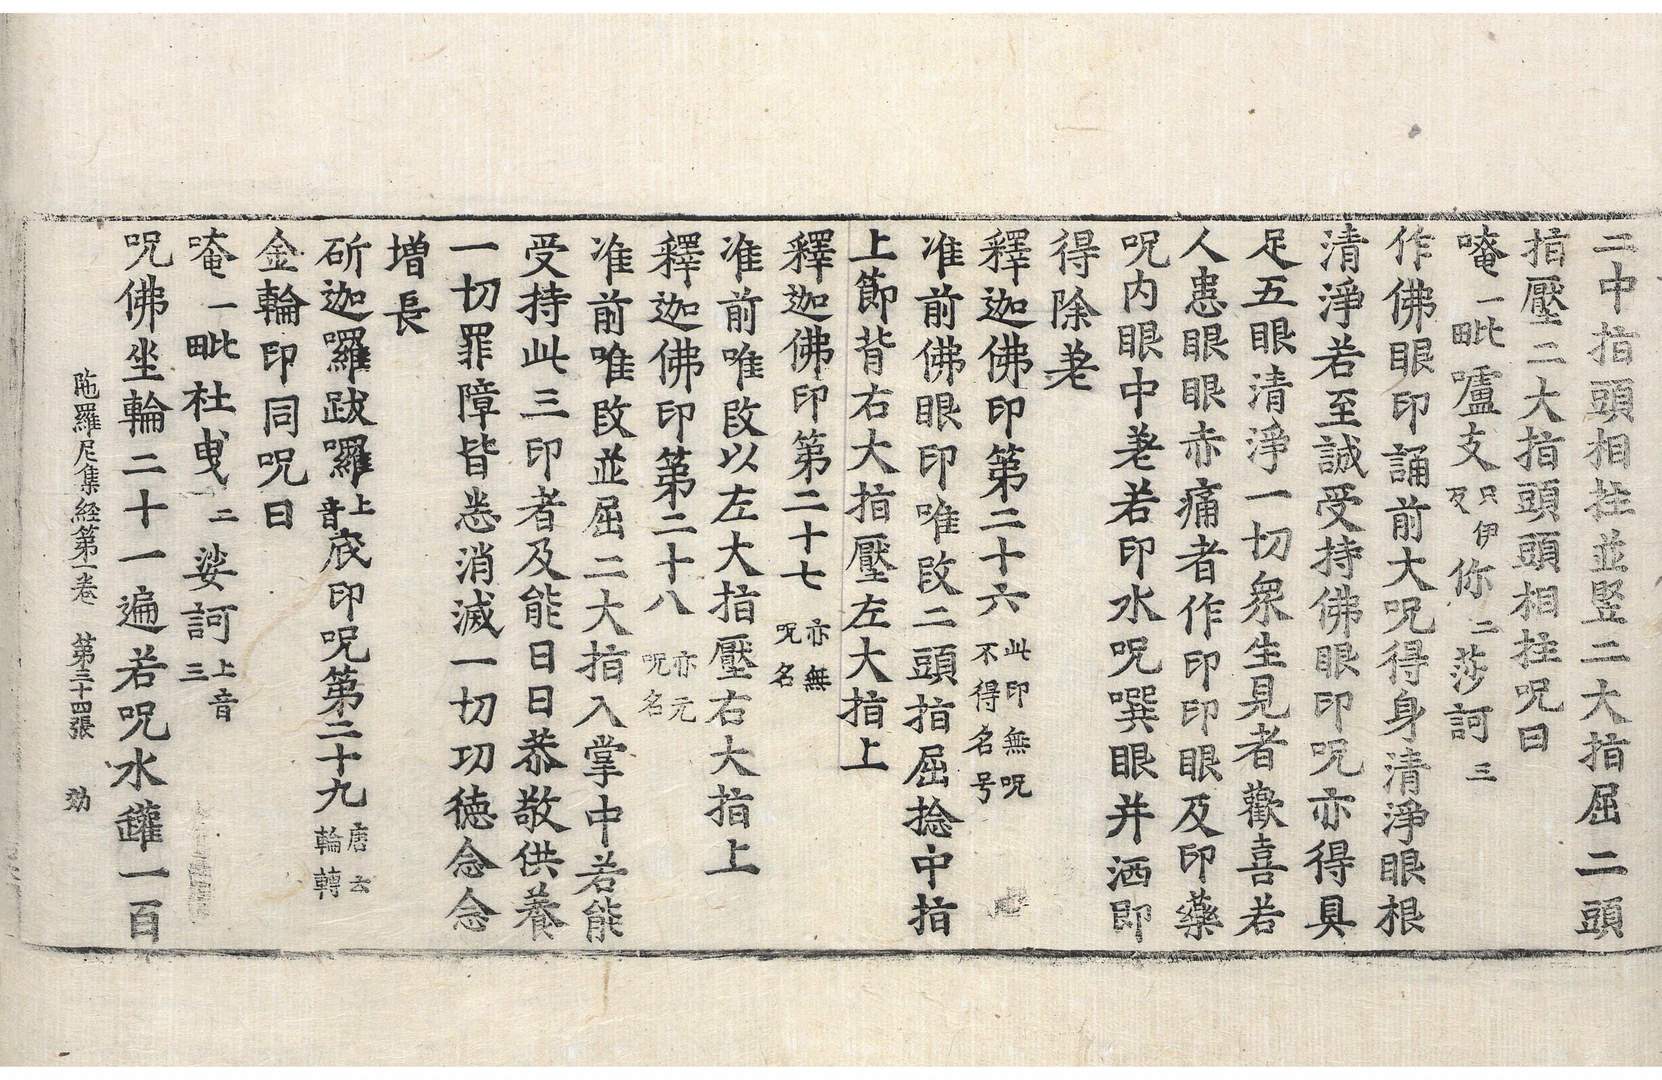 二中指頭相拄並竪二大指屈二頭
指壓二大指頭頭相拄呪曰
唵一毗嚧支只伊反你二莎訶三
作佛眼印誦前大呪得身清淨眼根
清淨若至誠受持佛眼印呪亦得具
足五眼清淨一切衆生見者歡喜若
人患眼眼赤痛者作印印眼及印藥
呪內眼中差若印水呪噀眼并洒即
得除差
釋迦佛印第二十六此印無呪不得名号
准前佛眼印唯改二頭指屈捻中指
上節背右大指壓左大指上
釋迦佛印第二十七亦無呪名
准前唯改以左大指壓右大指上
釋迦佛印第二十八亦无呪名
准前唯改並屈二大指入掌中若能
受持此三印者及能日日恭敬供養
一切罪障皆悉消滅一切功德念念
增長
斫迦囉跋囉上音底印呪第二十九唐云輪轉
金輪印同呪曰
唵一毗杜曳二娑訶上音三
呪佛坐輪二十一遍若呪水罐一百
陁羅尼集経第一卷　第三十四張　効